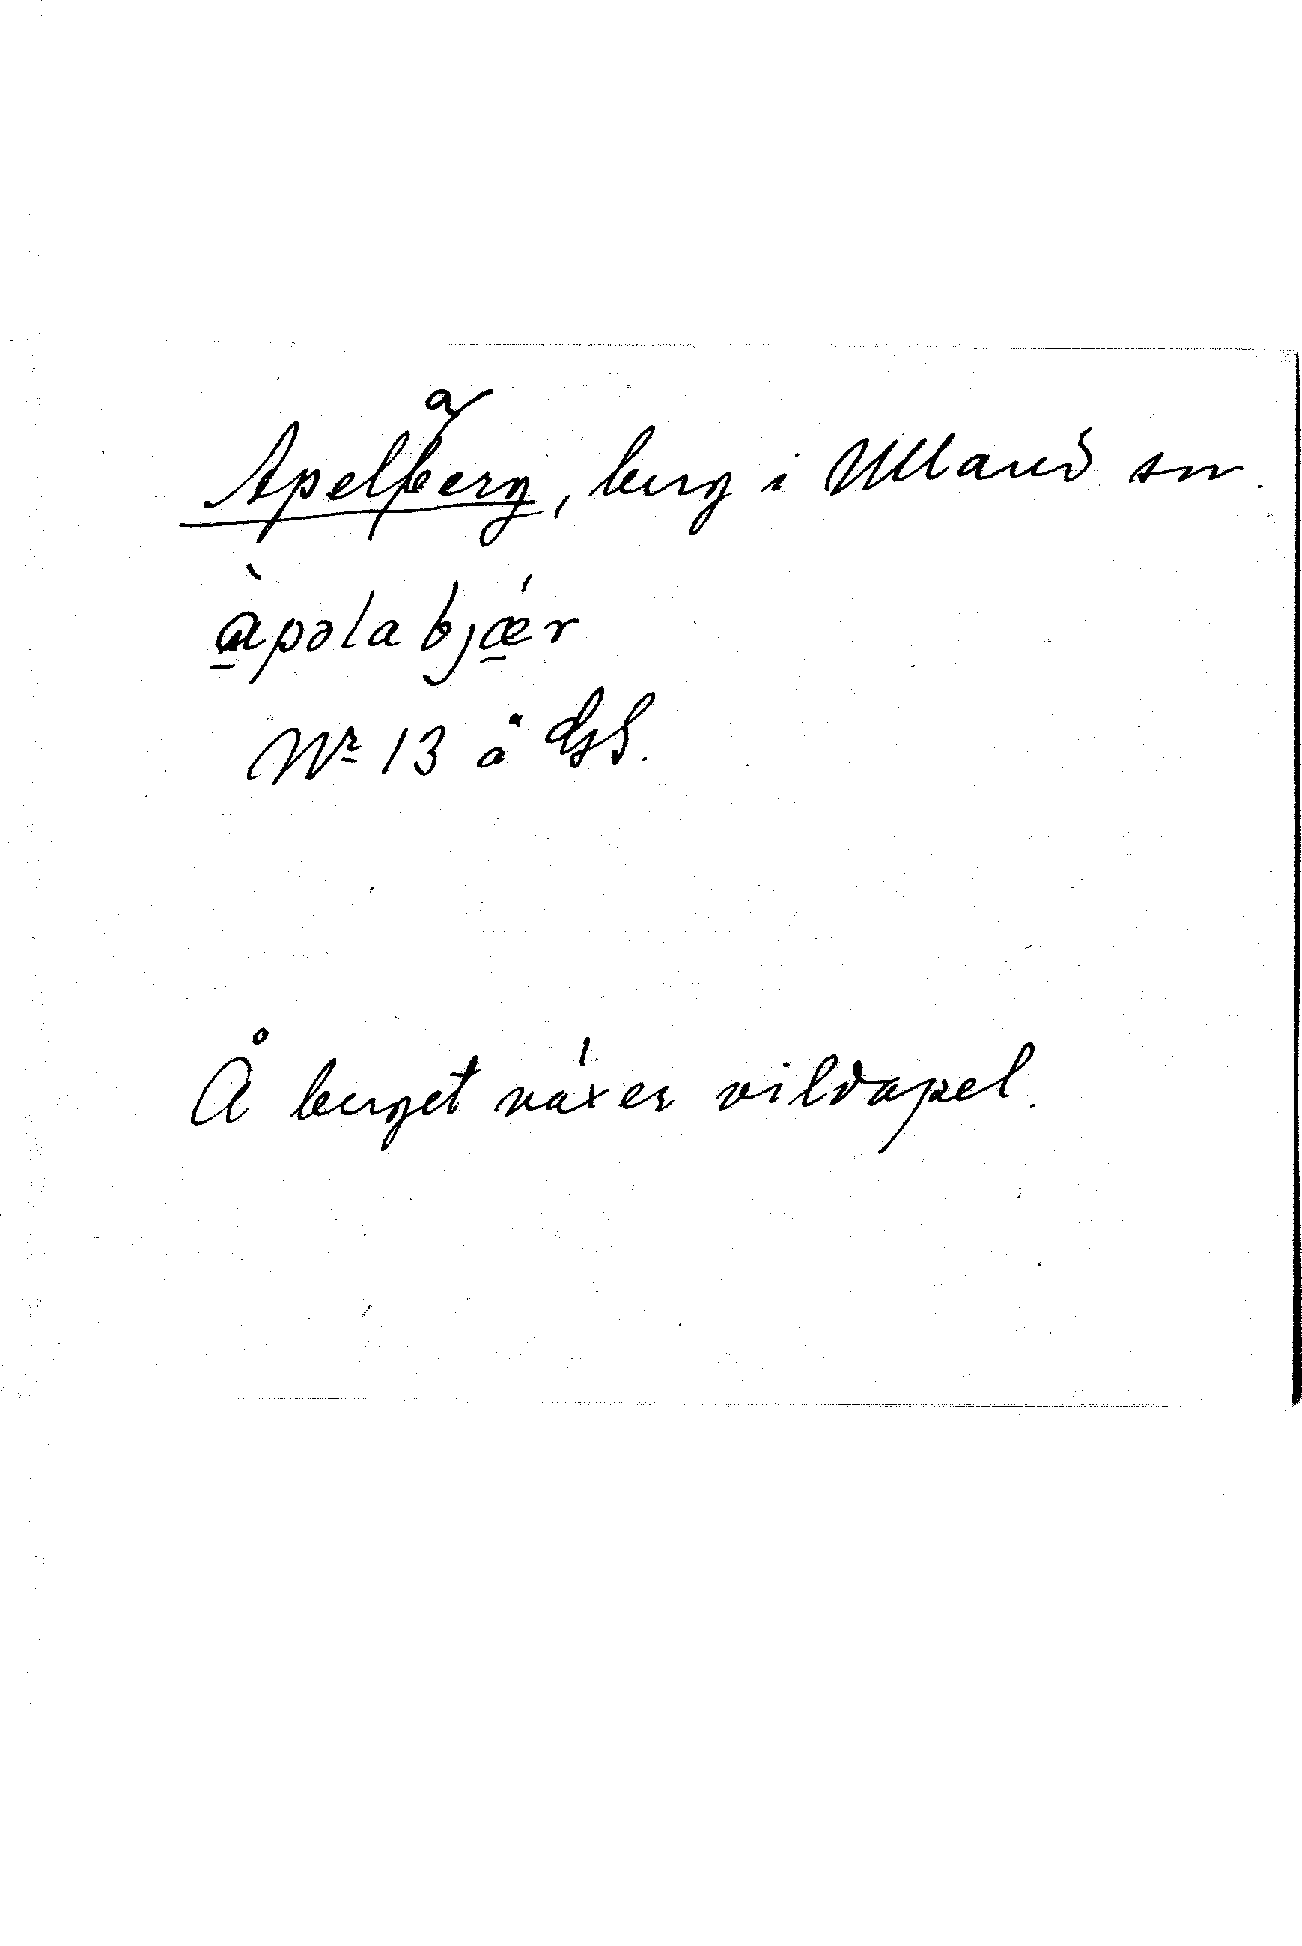 Apelaberg, berg i Ulland sn.
ȧ̱̀pəla bjǽ̱r
Nr 13 å GS.
Å berget växer vildapel.